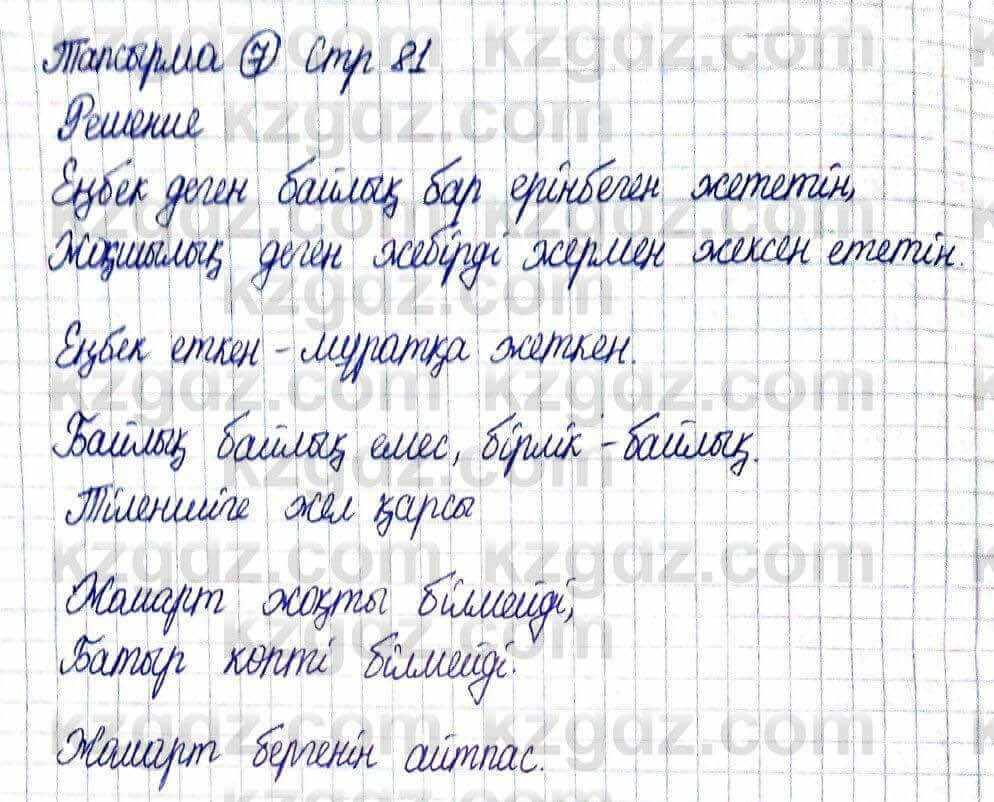 Тапсырма 7 Стр 81
Решение
Еңбек деген байлық бар ерінбеген жететін,
Жоқшылық деген жебірді жермен жексен ететін.
Еңбек еткен - мұратқа жеткен.
Байлық байлық емес, бірлік - байлық.
Тіленшіге жел қарсы
Жомарт жоқты білмейді,
Батыр көпті білмейді.
Жомарт бергенін айтпас.